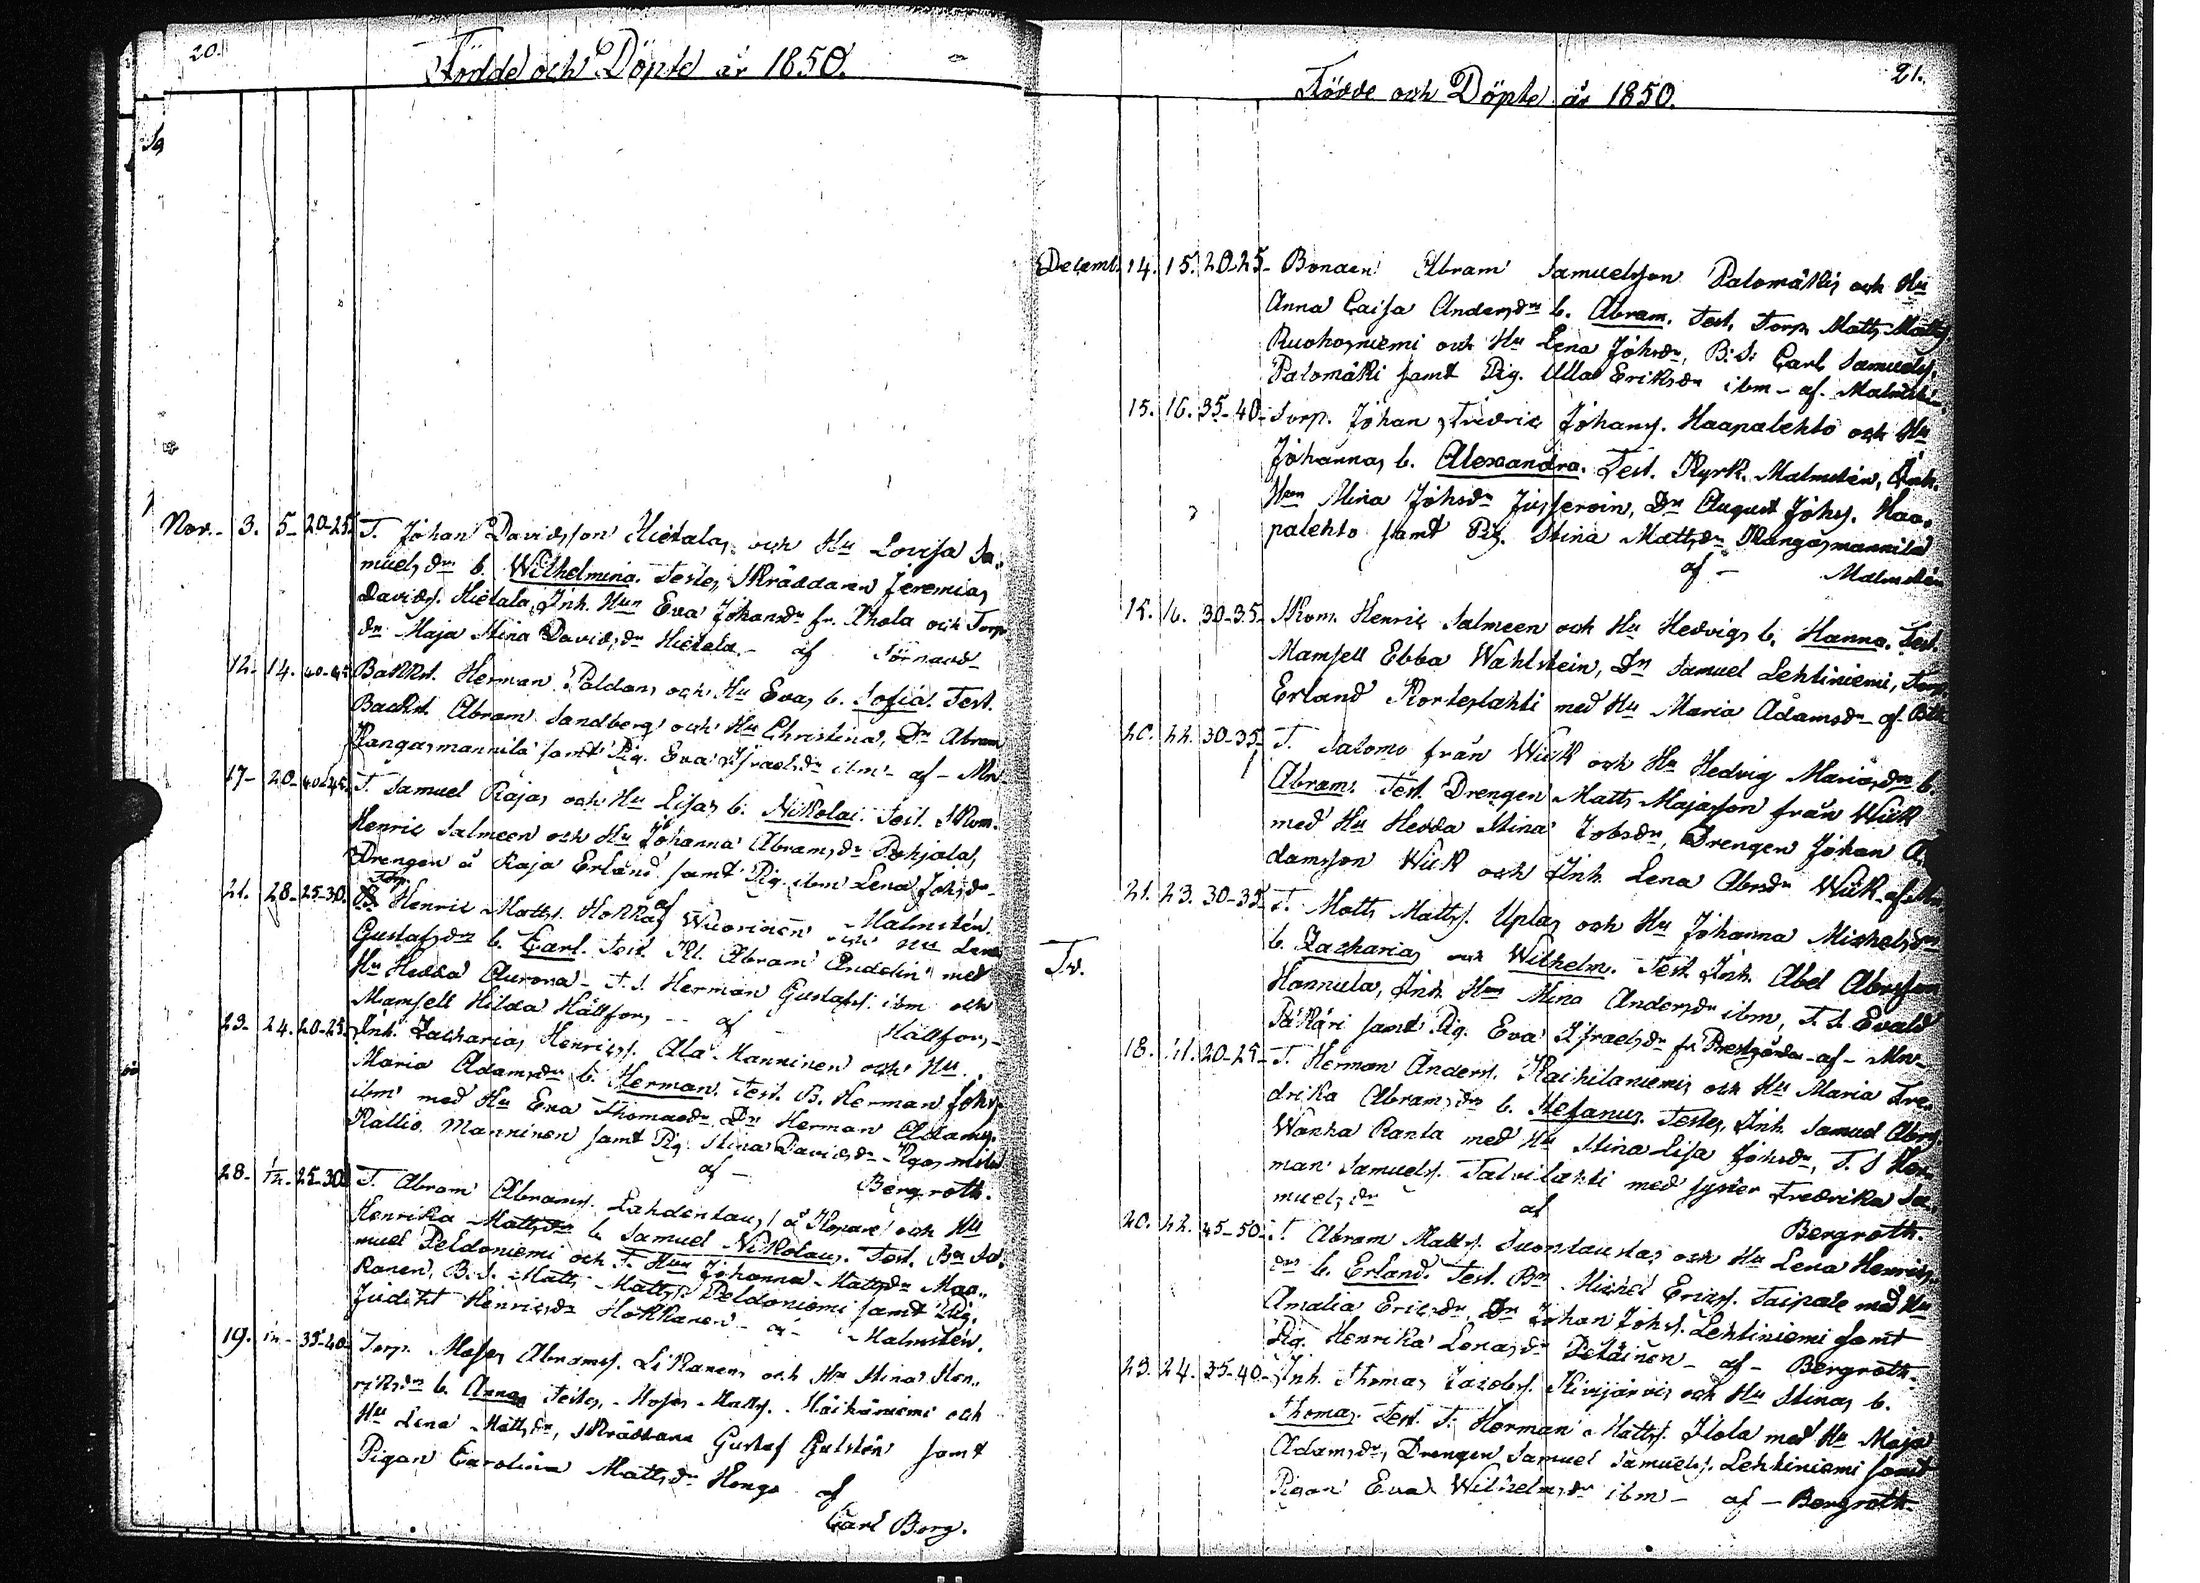 20.
Födde och Döpte år 1850.
Nov. 3. 5 20-25. T. Johan Davidsson Hietalas och Hu Lovisa Sa-
muelsdr b. Wilhelmina. Testes Skräddaren Jeremias
Davids. Hietala, Inh. Hun Eva Johansdr fr. Ahola och Torp
dr Maja Stina Davidsdr Hietala. af Törnudd
12. 14. 40-45 Backst. Herman Paldans och Hu Evas b. Sofia. Test.
Backst. Abram Sandberg och Hu Christina, Dr Abram
Kangasmannila samt Pig. Eva Israelsdr ibm - af - Mn
17- 20- 40-45. T. Samuel Rajas och Hu Lisas b. Nikolai. Test. Skom.
Henric Salmeen och Hu Johanna Abramsdr Pohjala,
Drengen å Raja Erland samt Pig. ibm Lena Johsdr
af Malmstén.
21. 28. 25-30. Torp. Henric Matts. Hokkas Wuorinen och Hu Lena
Gustafsdrs b. Carl. Test. Kl. Abram Andelin med
Hu Hedda Aurora - T.S. Herman Gustafs. ibm och
Mamsell Hilda Hällfors - af - Hällfors
23- 24. 20-25. Inh. Zacharias Henrics. Ala-Manninen och Hu
Maria Adamsdr b. Herman. Test. B. Herman Johs.
ibm med Hu Eva Thomasdr Dr Herman Adams.
Kallio Manninen samt Pig. Stina Davidsdr
af - Bergroth.
28- 1/12- 25-30. T. Abram Abrams. Lahdentaus å och Hu
Henrika Mattsdr b. Samuel Nikolaus. Test. Bn Sa-
muel Peldoniemi och T. Hun Johanna Mattsdr Maa-
Ranen, B.S. Matts Matts. Peldoniemi samt Pig.
Judith Henricsdr Hokkanen - af - Malmstén.
19. 35-40 Torp. Moses Abrams. Likanens och Hu Stinas Hen-
riksdrs b. Anna Testes, Moses Matts. Häikäniemi och
Hu Lena Mattsdr, Skräddare Gustaf Gulstén samt
Pigan Carolina Mattsdr Honga af
Carl Borg.
21.
Födde och Döpte år 1850.
Decemb. 14. 15. 20-25- Bonden Abram Samuelsson Palomäkis och Hu
Anna Caisa Andersdrs b. Abram. Test. Torp. Matts Matts.
Ruohosniemi och Hu Lena Johsdr, B:S: Carl Samuels.
Palomäki samt Pig. Ulla Eriksdr ibm - af. Malmstén.
15. 16. 35-40- Torp. Johan Fredric Johans. Haapalehto och Hu
Johannas b. Alexandra. Test. Kyrk. Malmstén, Inh.
Hun Stina Johsdr Jusseroin, Dr August Johs. Haa-
palehto samt Pig. Stina Mattsdr Kangasmannila
af - Malmstén
15. 16. 30-35- Skom. Henric Salmeen och Hu Hedvigs b. Hanna. Test.
Mamsell Ebba Wahlstein, Dn Samuel Lehtiniemi, Torp.
Erland Korteslahti med Hu Maria Adamsdr - af Bth
20. 22. 30-35- T. Salomo från Wiik och Hu Hedvig Mariasdrs b.
Abram. Test. Drengen Matts Majasson från Wiik
med Hu Hedda Stina Jobsdr, Drengen Johan A-
damsson Wiik och Inh. Lena Absdr Wiik - af Mn
21. 23. 30-35- T. Matts Matts. Uplas och Hu Johanna Michelsdrs
Tv. b. Zacharias och Wilhelm. Test. Inh. Abel Absson
Hannula, Inh. Hun Stina Andersdr ibm, T.S. Evald
Päkäri samt Pig. Eva Israelsdr fr Prestgården - af - Mn
18. 21. 20-25- T. Herman Anders. Kaihilaniemis och Hu Maria Fre-
drika Abramsdrs b. Stefanus. Testes, Inh. Samuel Abrs.
Wanha Ranta med Hu Stina Lisa Johsdr, T.S. Her-
man Samuels. Talvilahti med syster Fredrika Sa-
muelsdr af Bergroth.
20. 22. 45-50- T. Abram Matts. Suontaustas och Hu Lena Henrics-
drs b. Erland. Test. Bn Michel Erics. Taipale med Hu
Amalia Ericsdr, Dn Johan Johs. Lehtiniemi samt
Pig. Henrika Lenasdr Petäinen - af - Bergroth.
23. 24. 35-40- Inh. Thomas Jacobs. Kivijärvis och Hu Stinas b.
Thomas. Test. T. Herman Matts. Ilola med Hu Maja
Adamsdr, Drengen Samuel Samuels. Lehtiniemi samt
Pigan Eva Wilhelmsdr ibm - af - Bergroth.